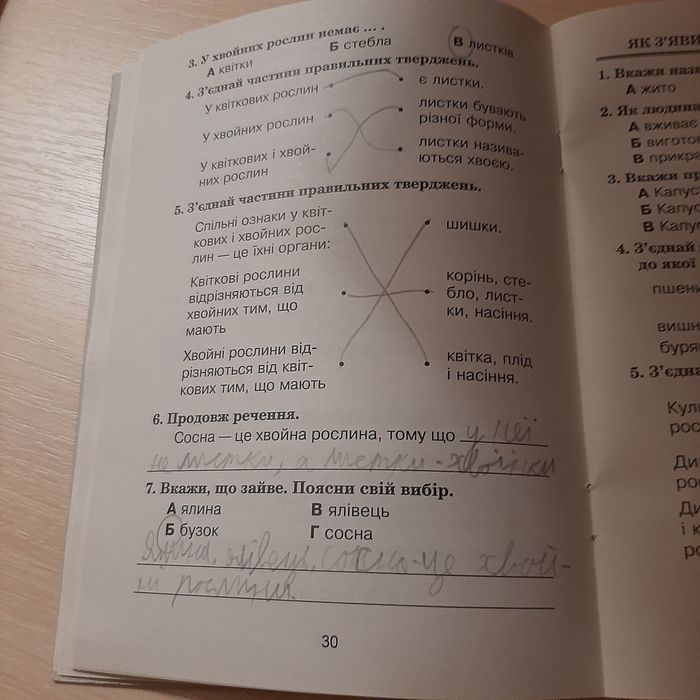 3. У хвойних рослин немає ... .
А квітки Б стебла В листків
4. З'єднай частини правильних тверджень.
У квіткових рослин є листки.
У хвойних рослин листки бувають
різної форми.
У квіткових і хвой-
них рослин листки назива-
ються хвоєю.
5. З'єднай частини правильних тверджень.
Спільні ознаки у квіт-
кових і хвойних рос-
лин — це їхні органи:
шишки.
Квіткові рослини
відрізняються від
хвойних тим, що
мають
корінь, сте-
бло, лист-
ки, насіння.
Хвойні рослини від-
різняються від квіт-
кових тим, що мають
квітка, плід
і насіння.
6. Продовж речення.
Сосна — це хвойна рослина, тому що у неї
не листки, а листки-хвоїнки
7. Вкажи, що зайве. Поясни свій вибір.
А ялина В ялівець
Б бузок Г сосна
Ялина, ялівець, сосна-це хвой-
ні рослини.
30
ЯК З'ЯВИ
1. Вкажи назв
А жито
2. Як людина
А вживає
Б вигото
В прикра
3. Вкажи пр
А Капус
Б Капус
В Капус
4. З'єднай
до якої
пшени
вишн
буря
5. З'єдна
Кул
рос
Ди
ро
Ди
і к
ро